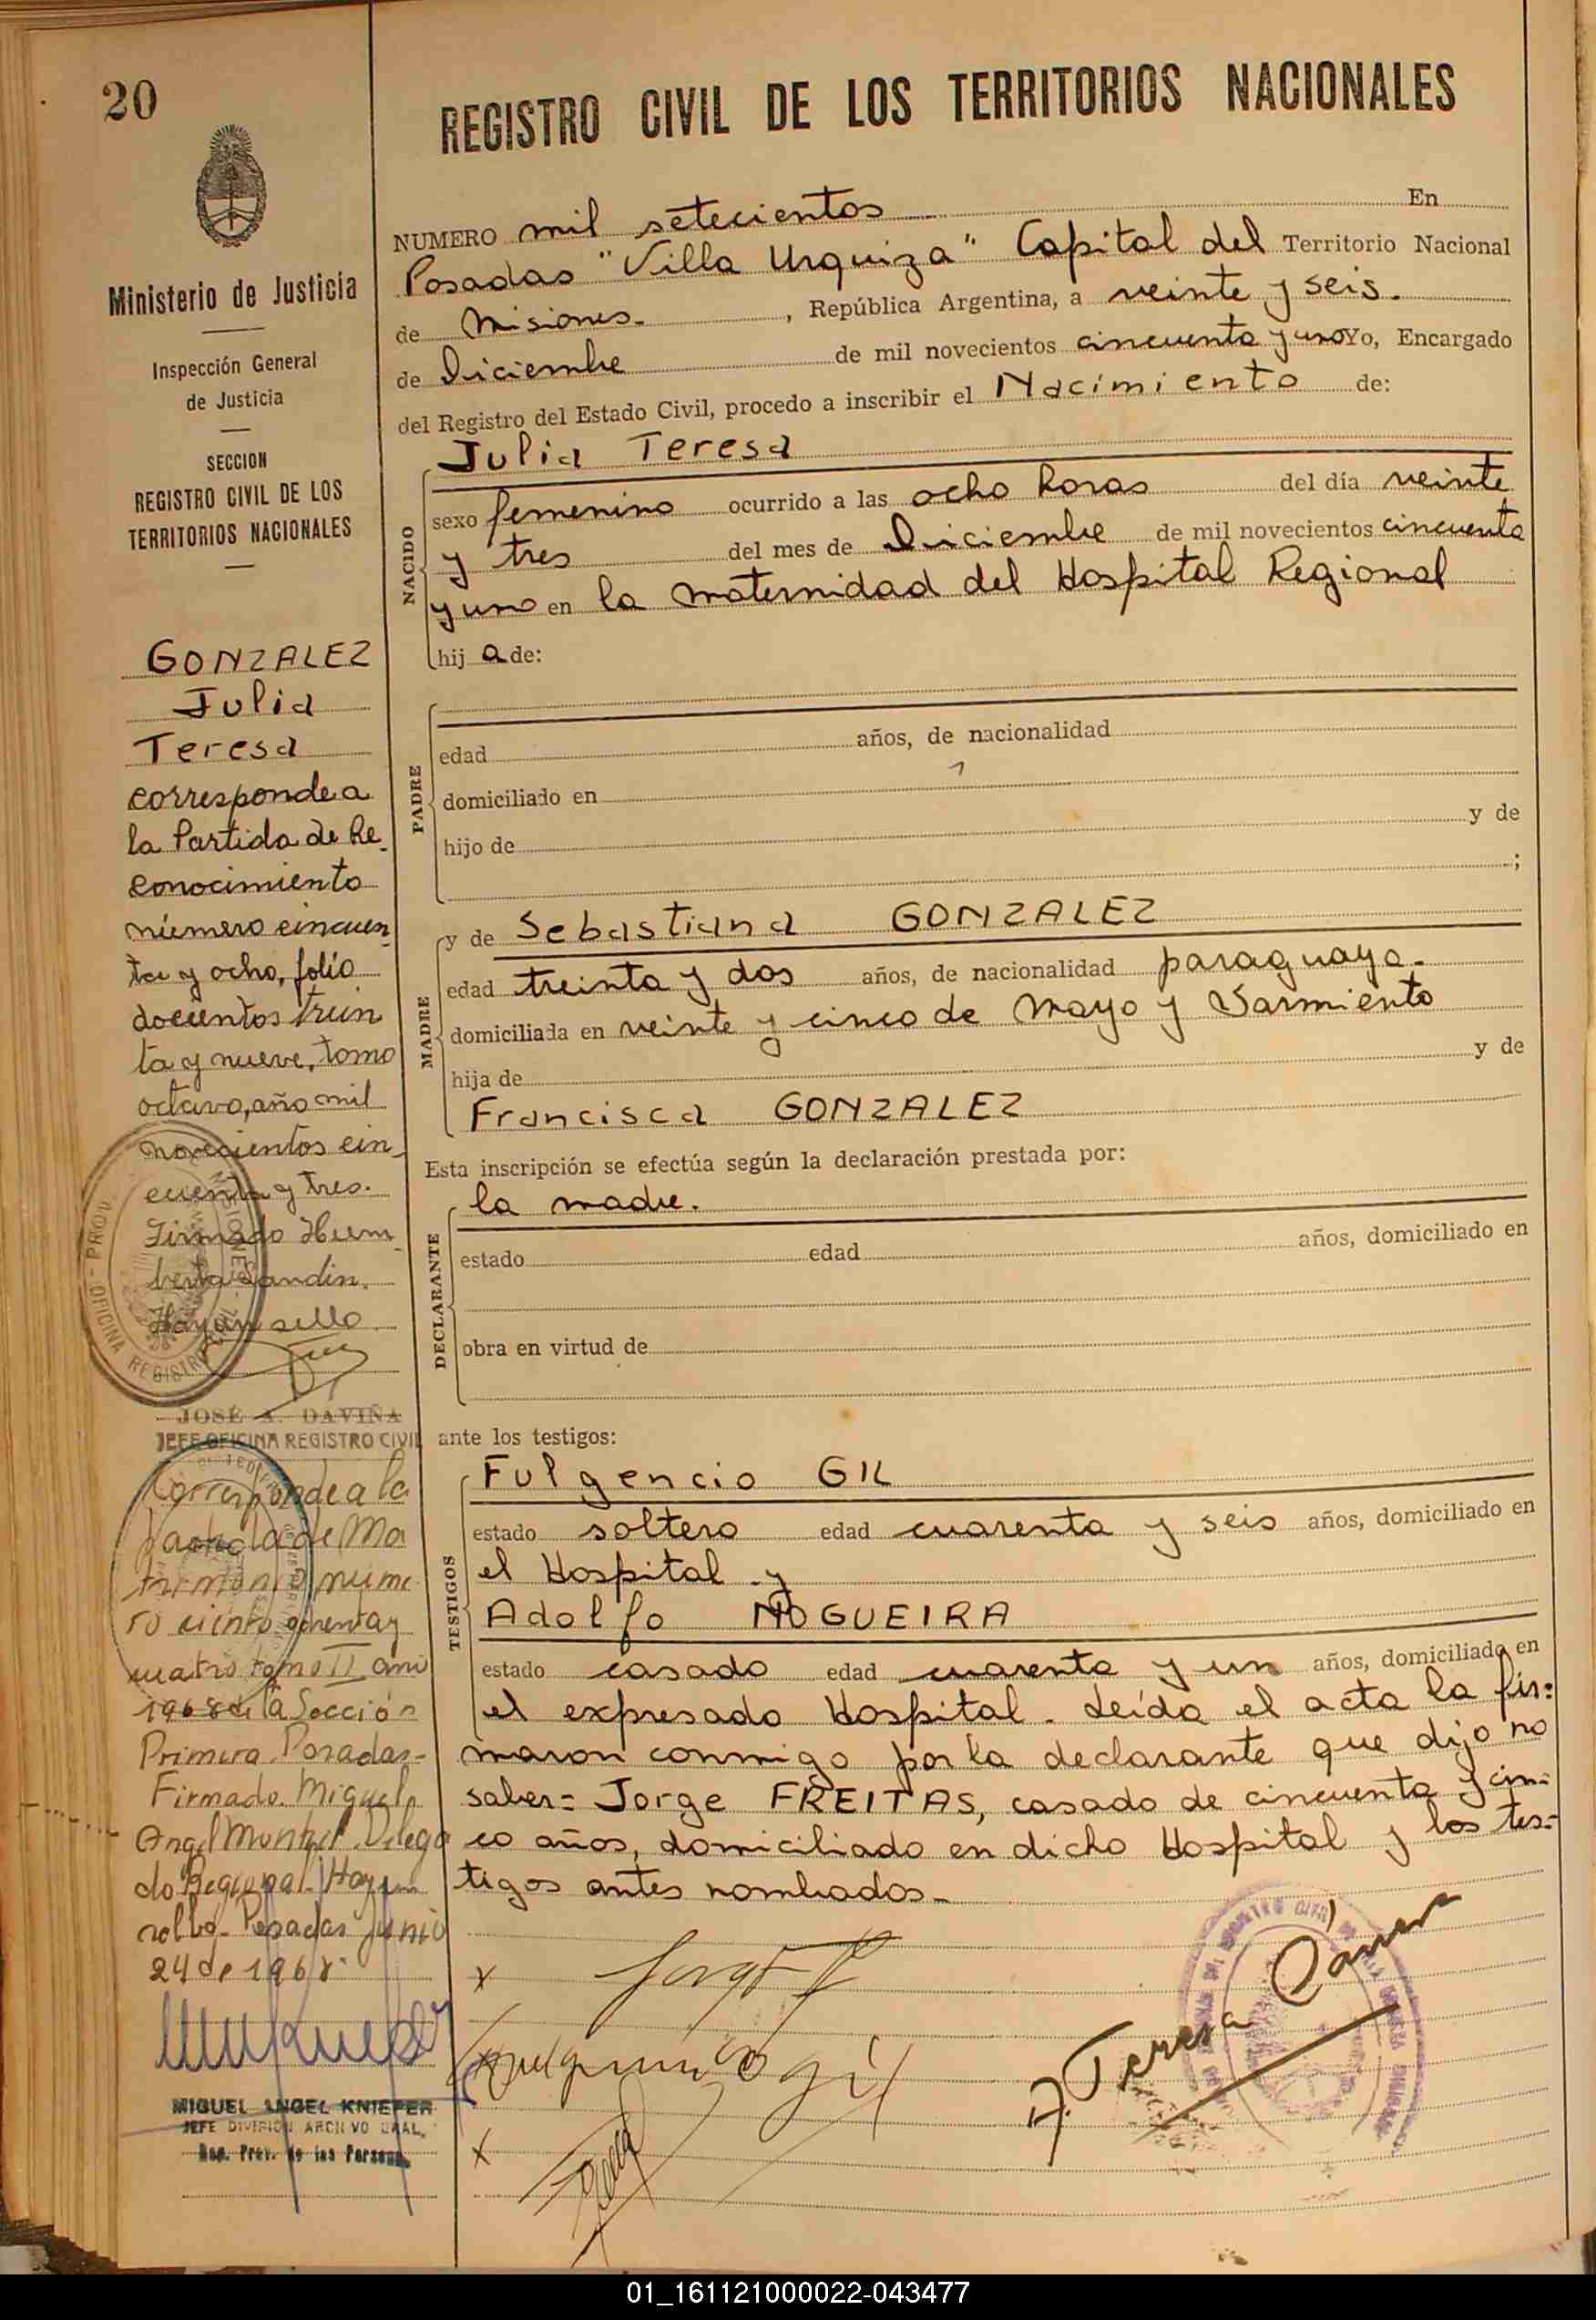 20
Ministerio de Justicia
Inspección General
de Justicia
SECCION
REGISTRO CIVIL DE LOS
TERRITORIOS NACIONALES
GONZALEZ
Julia
Teresa
corresponde a
la Partida de Re-
conocimiento
número cincuen-
ta y ocho, folio
docientos trein
ta y nueve, tomo
octavo, año mil
novecientos cin-
cuenta y tres.
Firmado Hum-
berto Landin.
Hay un sello
JOSÉ A. DAVIÑA
JEFE OFICINA REGISTRO CIVIL
Corresponde a la
partida de Ma
trimonio núme
ro ciento ochenta y
cuatro tomo II año
1968 de la Sección
Primera Posadas-
Firmado. Miguel
Angel Delega
do Regional. Hay un
sello- Posadas Junio
24 de 1968.
MIGUEL ANGEL KNIEPER
JEFE DIVISION ARCHIVO GRAL.
Reg. Prov. de las Personas
REGISTRO CIVIL DE LOS TERRITORIOS NACIONALES
NUMERO mil setecientos En
Posadas "Villa Urquiza" Capital del Territorio Nacional
de Misiones.- , República Argentina, a veinte y seis.
de Diciembre de mil novecientos cincuenta y uno Yo, Encargado
del Registro del Estado Civil, procedo a inscribir el Nacimiento de:
NACIDO
Julia Teresa
sexo femenino ocurrido a las ocho horas del día veinte
y tres del mes de Diciembre de mil novecientos cincuenta
y uno en la maternidad del Hospital Regional
hij a de:
PADRE
edad años, de nacionalidad
domiciliado en
hijo de y de
;
MADRE
y de Sebastiana GONZALEZ
edad treinta y dos años, de nacionalidad paraguaya.
domiciliada en veinte y cinco de Mayo y Sarmiento
hija de y de
Francisca GONZALEZ
Esta inscripción se efectúa según la declaración prestada por:
DECLARANTE
la madre.
estado edad años, domiciliado en
obra en virtud de
ante los testigos:
TESTIGOS
Fulgencio GIL
estado soltero edad cuarenta y seis años, domiciliado en
el Hospital y
Adolfo NOGUEIRA
estado casado edad cuarenta y un años, domiciliado en
el expresado Hospital. Leída el acta la fir=
maron conmigo por la declarante que dijo no
saber= Jorge FREITAS, casado de cincuenta y cin=
co años, domiciliado en dicho Hospital y los tes=
tigos antes nombrados.-
x Jorge F
x Fulgencio Gil
x
Teresa
01_161121000022-043477